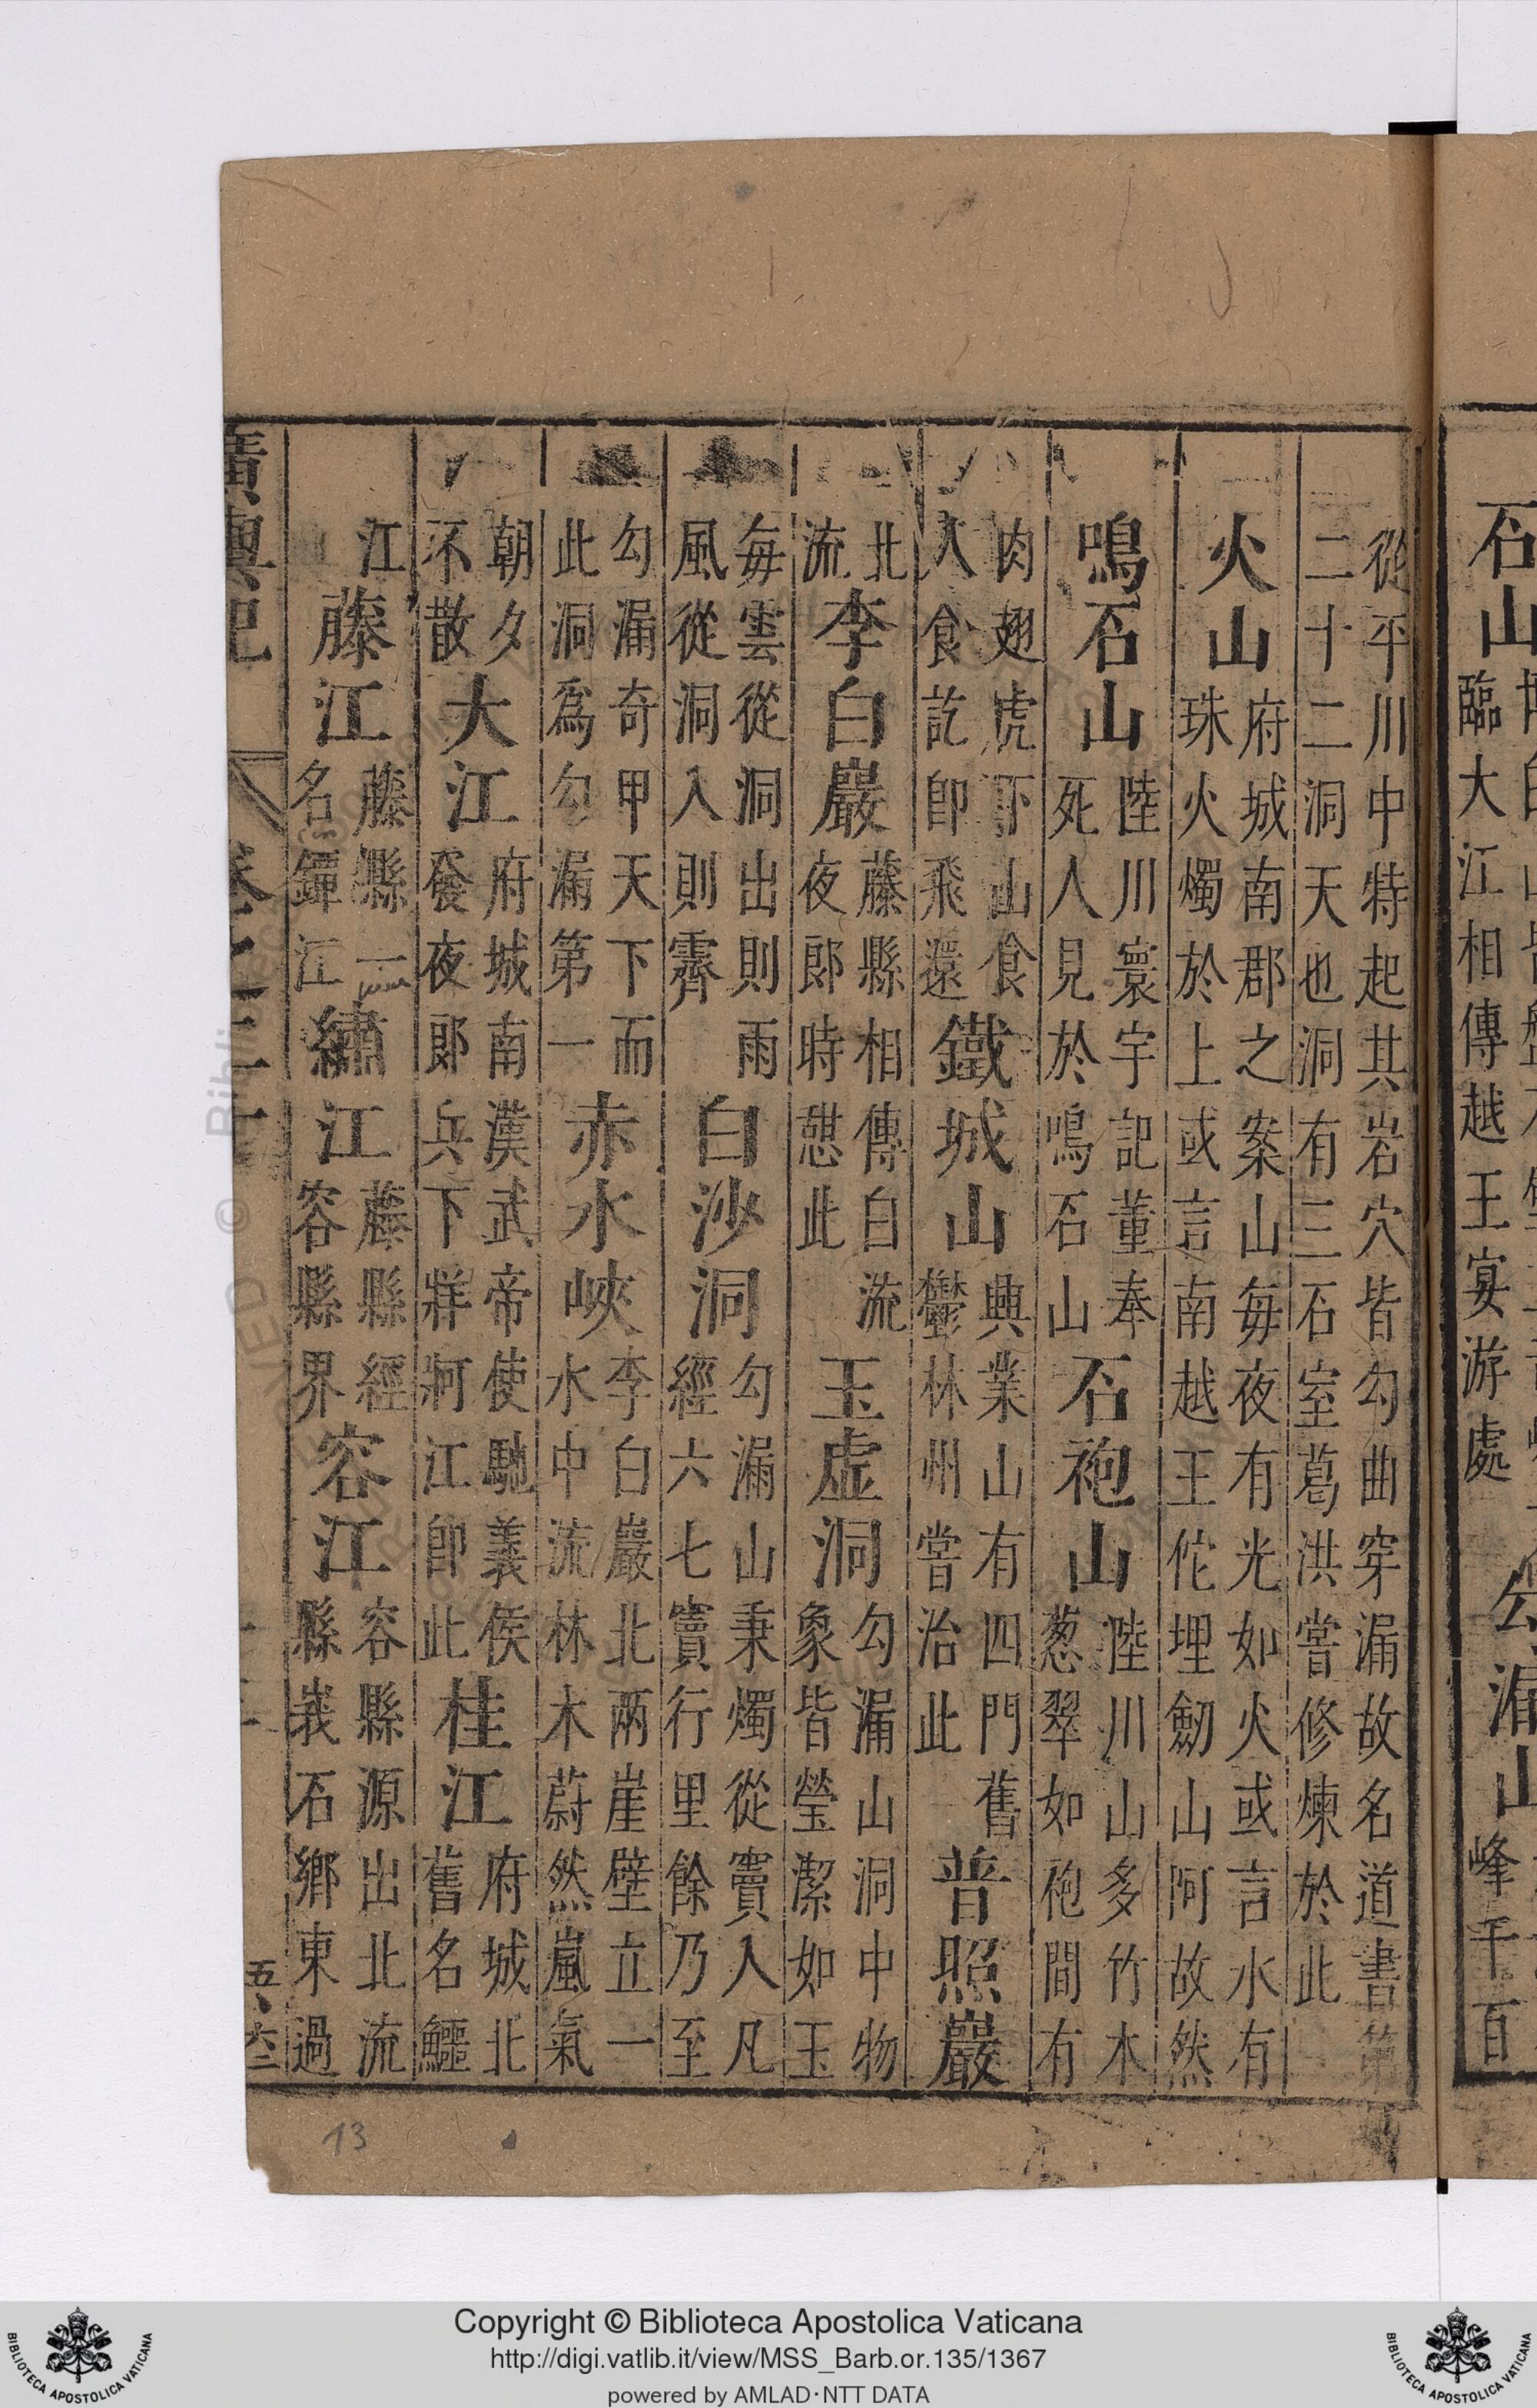 石山
臨大江相傳越王宴游處
勾漏山
峰千百
從平川中特起其岩穴皆勾曲穿漏故名道書第
二十二洞天也洞有三石室葛洪嘗修煉於此
火山
府城南郡之案山每夜有光如火或言水有
珠火燭於上或言南越王佗埋劒山阿故然
鳴石山
陸川寰宇記董奉
死人見於鳴石山
石袍山
陸川山多竹木
葱翠如袍間有
肉翅虎下山食
人食訖卽飛還
鐵城山
興業山有四門舊
鬱林州嘗治此
普照巖
北
流
李白巖
藤縣相傳白流
夜郎時憇此
玉虛洞
勾漏山洞中物
象皆瑩潔如玉
每雲從洞出則雨
風從洞入則霽
白沙洞
勾漏山秉燭從竇入凡
經六七竇行里餘乃至
勾漏奇甲天下而
此洞爲勾漏第一
赤水峽
李白巖北兩崖壁立一
水中流林木蔚然嵐氣
朝夕
不散
大江
府城南漢武帝使馳義侯
發夜郎兵下牂牁江卽此
桂江
府城北
舊名鱷
江
藤江
藤縣一
名鐔江
繡江
藤縣經
容縣界
容江
容縣源出北流
縣峩石鄉東過
廣輿記
卷之二十
13
Copyright © Biblioteca Apostolica Vaticana
http://digi.vatlib.it/view/MSS_Barb.or.135/1367
powered by AMLAD·NTT DATA
BIBLIOTECA APOSTOLICA VATICANA
BIBLIOTECA APOSTOLICA VATICANA